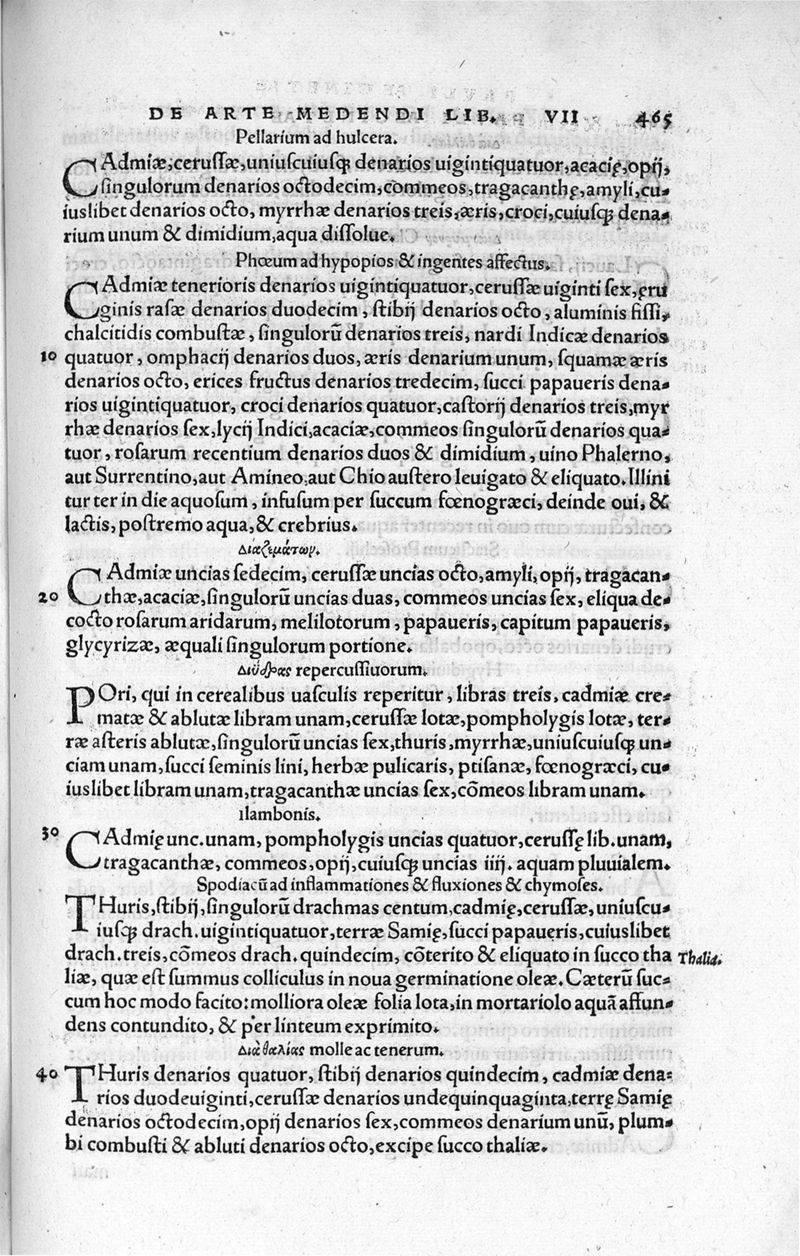 DE ARTE MEDENDI LIB. VII 465
Pellarium ad hulcera.
CAdmiæ, ceruſſæ, uniuſcuiuſq; denarios uigintiquatuor, acacię, opij,
ſingulorum denarios octodecim, commeos, tragacanthę, amyli, cu-
iuslibet denarios octo, myrrhæ denarios treis, æris, croci, cuiuſq; dena-
rium unum & dimidium, aqua diſſolue.
Phœum ad hypopios & ingentes affectus.
CAdmiæ tenerioris denarios uigintiquatuor, ceruſſæ uiginti ſex, ęru
ginis raſæ denarios duodecim, ſtibij denarios octo, aluminis fiſſi,
chalcitidis combuſtæ, ſingulorū denarios treis, nardi Indicæ denarios
10 quatuor, omphacij denarios duos, æris denarium unum, ſquamæ æris
denarios octo, erices fructus denarios tredecim, ſucci papaueris dena-
rios uigintiquatuor, croci denarios quatuor, caſtorij denarios treis, myr
rhæ denarios ſex, lycij Indici, acaciæ, commeos ſingulorū denarios qua-
tuor, roſarum recentium denarios duos & dimidium, uino Phalerno,
aut Surrentino, aut Amineo, aut Chio auſtero leuigato & eliquato. Illini
tur ter in die aquoſum, infuſum per ſuccum fœnogræci, deinde oui, &
lactis, poſtremo aqua, & crebrius.
Διαζεμάτων.
CAdmiæ uncias ſedecim, ceruſſæ uncias octo, amyli, opij, tragacan-
20 thæ, acaciæ, ſingulorū uncias duas, commeos uncias ſex, eliqua de-
cocto roſarum aridarum, melilotorum, papaueris, capitum papaueris,
glycyrizæ, æquali ſingulorum portione.
repercuſſiuorum.
POri, qui in cerealibus uaſculis reperitur, libras treis, cadmiæ cre-
matæ & ablutæ libram unam, ceruſſæ lotæ, pompholygis lotæ, ter-
ræ aſteris ablutæ, ſingulorū uncias ſex, thuris, myrrhæ, uniuſcuiuſq; un-
ciam unam, ſucci ſeminis lini, herbæ pulicaris, ptiſanæ, fœnogræci, cu-
iuslibet libram unam, tragacanthæ uncias ſex, cōmeos libram unam.
Ilambonis.
30 CAdmię unc. unam, pompholygis uncias quatuor, ceruſſę lib. unam,
tragacanthæ, commeos, opij, cuiuſq; uncias iiij. aquam pluuialem.
Spodiacū ad inflammationes & fluxiones & chymoſes.
THuris, ſtibij, ſingulorū drachmas centum, cadmię, ceruſſæ, uniuſcu-
iuſq; drach. uigintiquatuor, terræ Samię, ſucci papaueris, cuiuslibet
drach. treis, cōmeos drach. quindecim, cōterito & eliquato in ſucco tha Thalia.
liæ, quæ eſt ſummus colliculus in noua germinatione oleæ. Cæterū ſuc-
cum hoc modo facito: molliora oleæ folia lota, in mortariolo aquā affun-
dens contundito, & per linteum exprimito.
Διὰ θαλίας molle ac tenerum.
40 THuris denarios quatuor, ſtibij denarios quindecim, cadmiæ dena-
rios duodeuiginti, ceruſſæ denarios undequinquaginta, terrę Samię
denarios octodecim, opij denarios ſex, commeos denarium unū, plum-
bi combuſti & abluti denarios octo, excipe ſucco thaliæ.